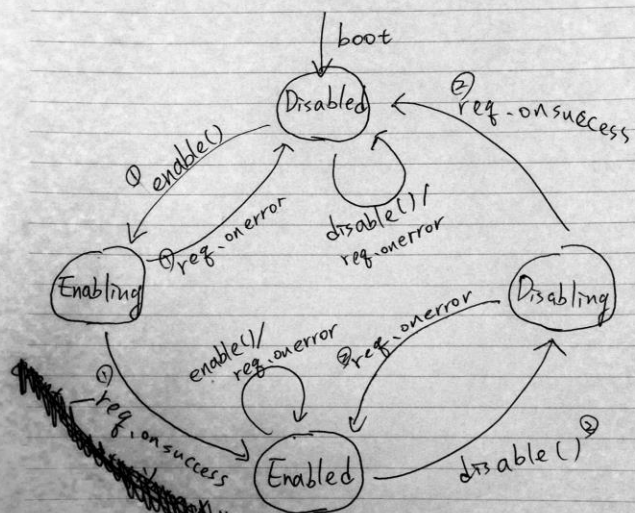 boot
Disabled
② req.onsuccess
① enable()
① req.onerror
disable()/
req.onerror
Enabling
Disabling
enable()/
req.onerror
② req.onerror
① req.onsuccess
Enabled
disable() ②